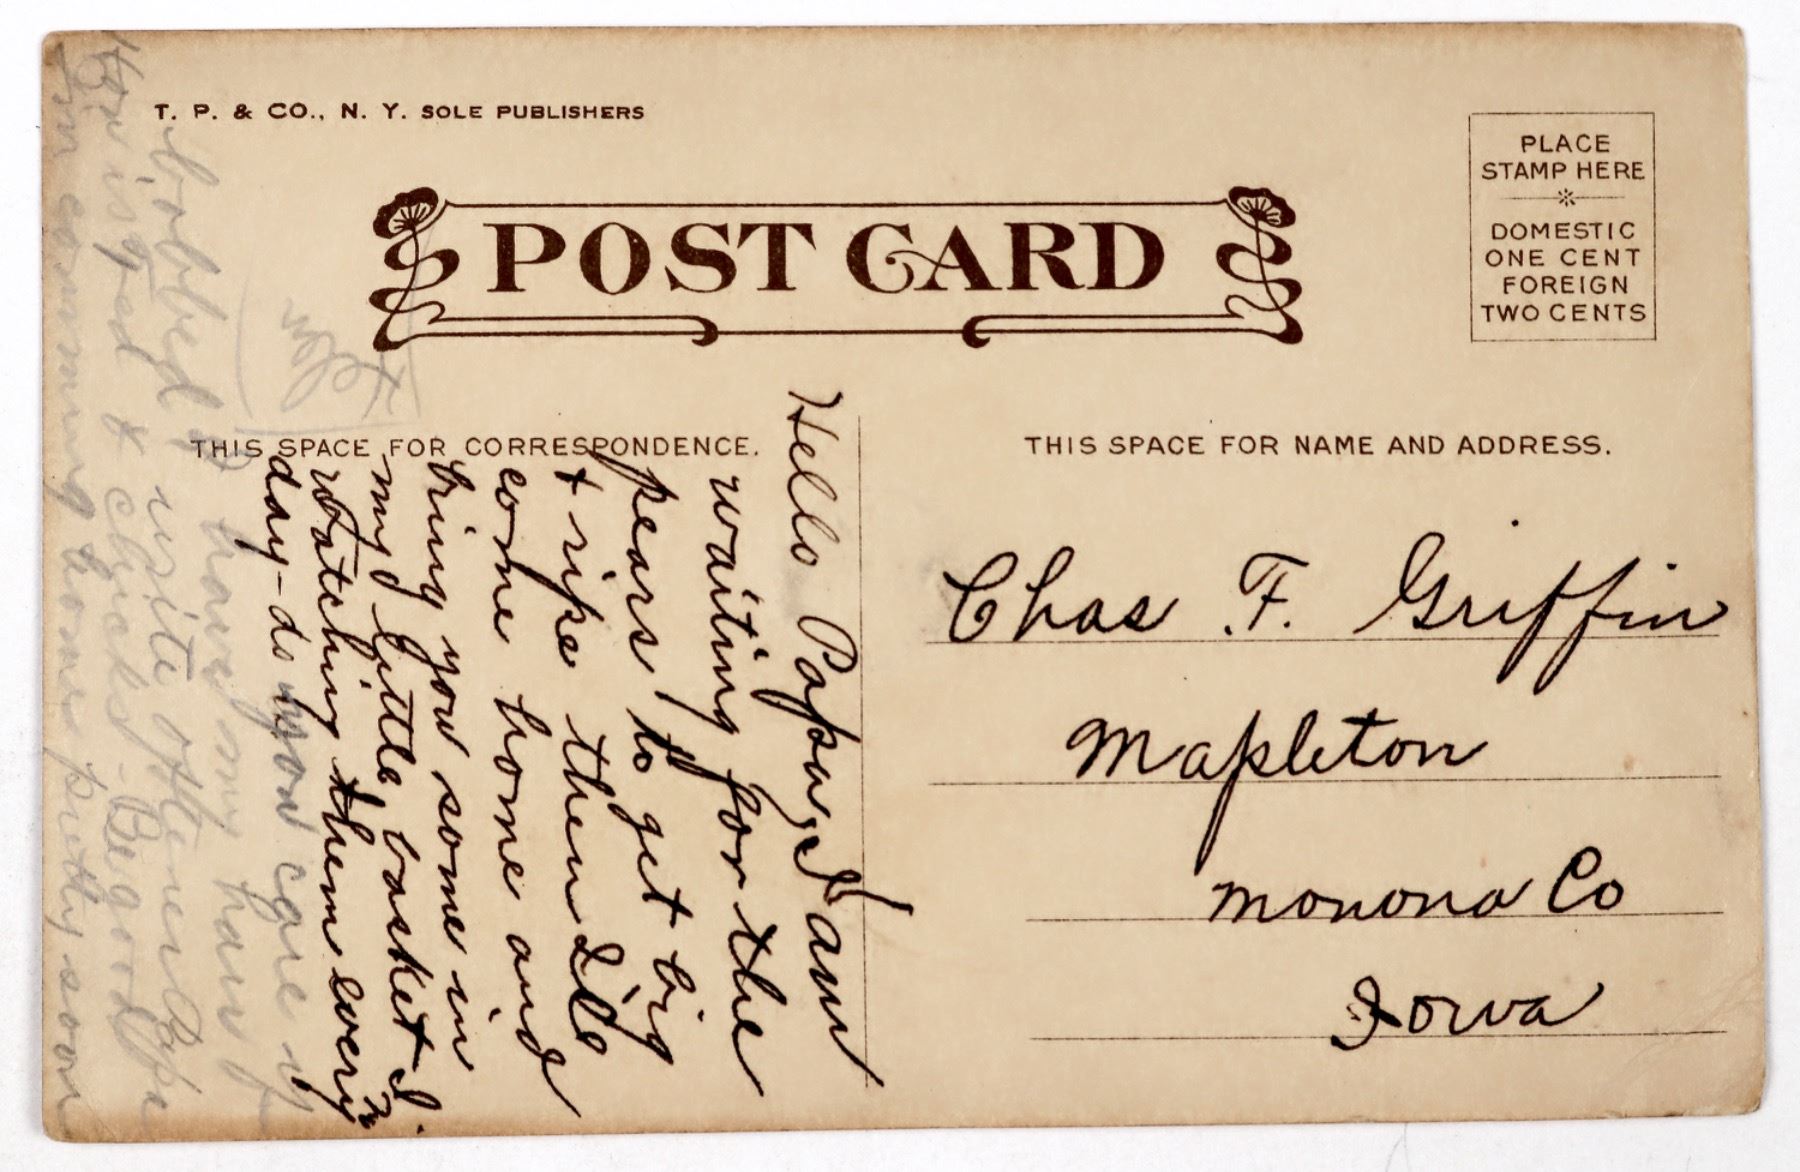 T. P. & CO., N. Y. SOLE PUBLISHERS
POST CARD
PLACE
STAMP HERE
DOMESTIC
ONE CENT
FOREIGN
TWO CENTS
THIS SPACE FOR CORRESPONDENCE.
THIS SPACE FOR NAME AND ADDRESS.
Hello Papa, I am
waiting for the
pears to get big
& ripe then I'll
come home and
bring you some in
my little basket I'm
watching them every
day - do you care if
I have my hair
bobbed? write often Papa
How is Ted & chicks - Be good
I'm comming home pretty soon
Helen
Chas F. Griffin
Mapleton
Monona Co
Iowa